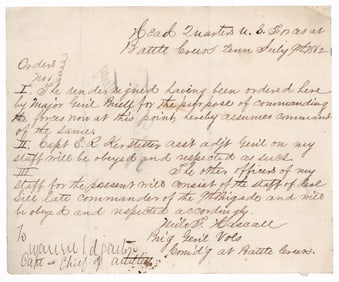 Head Quarters U.S. Forces at
Battle Creek Tenn July 1862
Orders
No.
I. The undersigned having been ordered here
by Major Genl Buell for the purpose of commanding
the forces now at this point, hereby assumes command
of the same.
II. Capt E. R. Kerstetter asst adjt Genl on my
staff will be obeyed and respected as such.
III The other officers of my
staff for the present will consist of the staff of Col
Sill late commander of the and will
be obeyed and respected accordingly.
Milo S. Hascall
Brig Genl Vols
Comd'g at Battle Creek.
To
Capt & Chief of